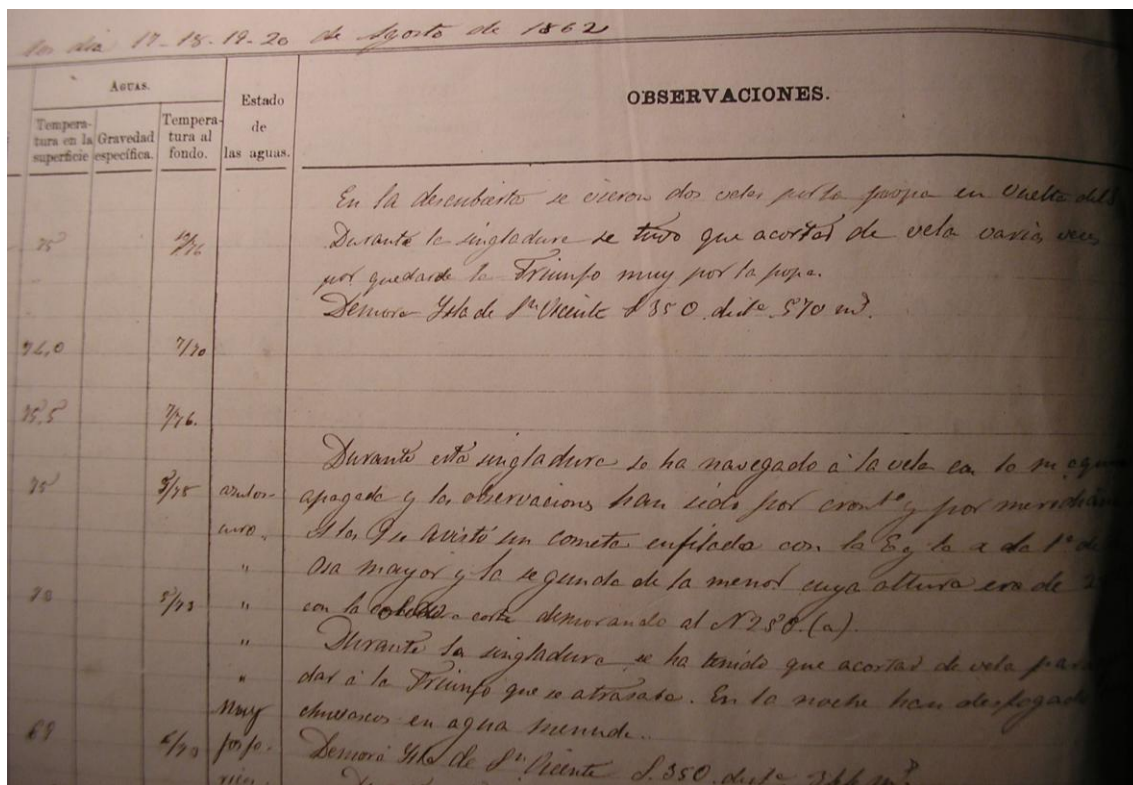 los dia 17-18-19-20 de Agosto de 1862
AGUAS.
Tempera-
tura en la
superficie
Gravedad
específica.
Tempera-
tura al
fondo.
Estado
de
las aguas.
OBSERVACIONES.
En la descubierta se vieron dos velas por la propa en vuelta del S
75
Durante la singladura se tuvo que acortar de vela varias veces
por quedarse la Triunfo muy por la popa.
Demora Ysla de Sn Vicente S 35 O. distª. 570 mˢ.
7/70
75,5
7/76.
Durante esta singladura se ha navegado á la vela con la maquina
75 5/75 azul os-
apagada y las observaciones han sido por cronᵗº y por meridiana
curo.
A las 9 se avistó un cometa enfilado con la E y la a de la 1ª de la
"
Osa mayor y la segunda de la menor cuya altura era de
70 5/73 "
con la corta demorando al N 25 O. (a).
"
Durante la singladura se ha tenido que acortar de vela para
"
dar á la Triunfo que se atrasaba. En la noche han desfogado
Muy
chubascos en agua menuda.
69 6/70 fosfo-
Demora Ysla de Sn Vicente S. 35 O. distª 366 mˢ.